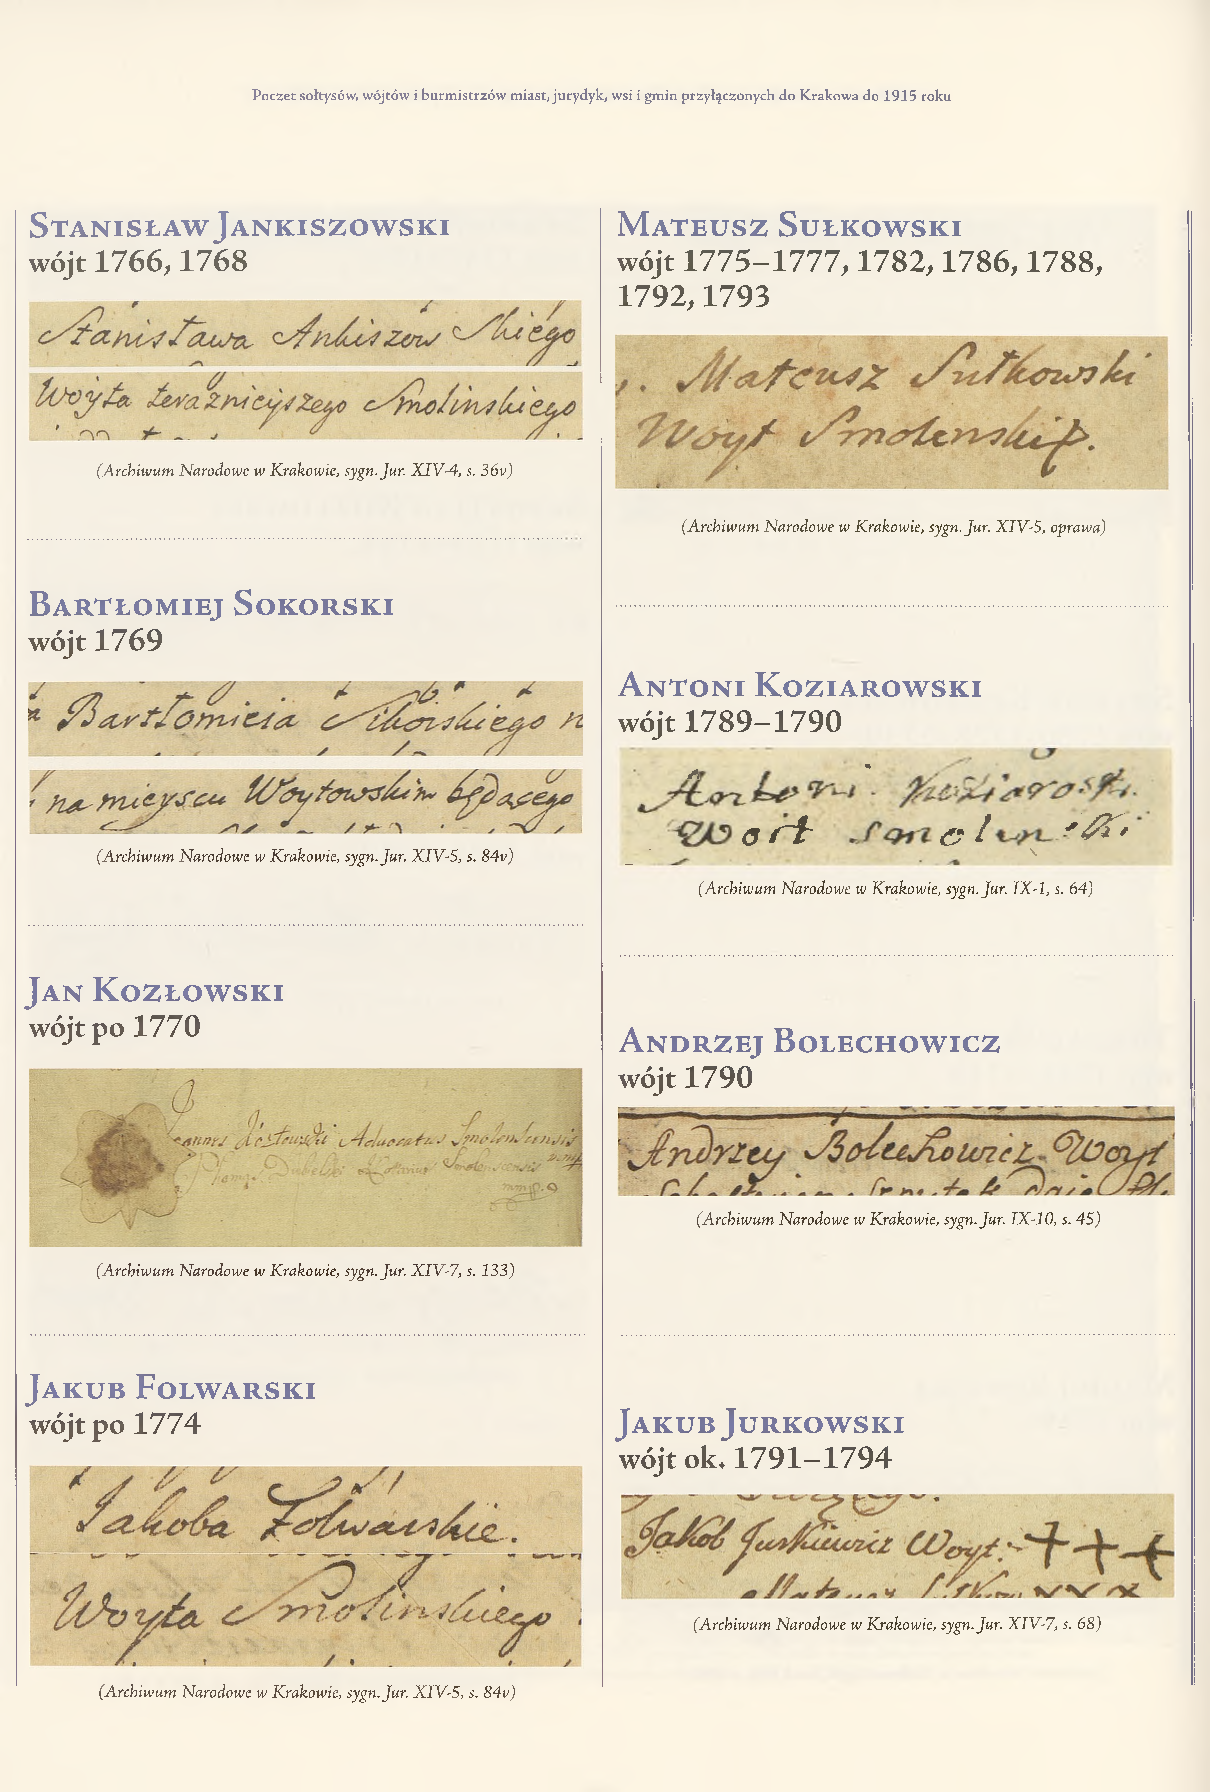 Poczet sołtysów, wójtów i burmistrzów miast, jurydyk, wsi i gmin przyłączonych do Krakowa do 1915 roku
Stanisław Jankiszowski
wójt 1766, 1768
Stanisława Ankiszow Skiego
Woyta teraznieyszego Smolinskiego
(Archiwum Narodowe w Krakowie, sygn. Jur. XIV-4, s. 36v)
Bartłomiej Sokorski
wójt 1769
Bartłomieia Sikorskiego
na mieyscu Woytowskim będącego
(Archiwum Narodowe w Krakowie, sygn. Jur. XIV-5, s. 84v)
Jan Kozłowski
wójt po 1770
Joannes Kozłowski Advocatus Smolensensis
Notarius Smolenscensis
(Archiwum Narodowe w Krakowie, sygn. Jur. XIV-7, s. 133)
Jakub Folwarski
wójt po 1774
Jakoba Folwarskie.
Woyta Smolinskiego
(Archiwum Narodowe w Krakowie, sygn. Jur. XIV-5, s. 84v)
Mateusz Sułkowski
wójt 1775–1777, 1782, 1786, 1788,
1792, 1793
Mateusz Sułkowski
Woyt Smolenski
(Archiwum Narodowe w Krakowie, sygn. Jur. XIV-5, oprawa)
Antoni Koziarowski
wójt 1789–1790
Antoni Koziaroski
Woit smolenski
(Archiwum Narodowe w Krakowie, sygn. Jur. IX-1, s. 64)
Andrzej Bolechowicz
wójt 1790
Andrzey Bolechowicz Woyt
(Archiwum Narodowe w Krakowie, sygn. Jur. IX-10, s. 45)
Jakub Jurkowski
wójt ok. 1791–1794
Jakob Jurkiewicz Woyt. + + +
(Archiwum Narodowe w Krakowie, sygn. Jur. XIV-7, s. 68)